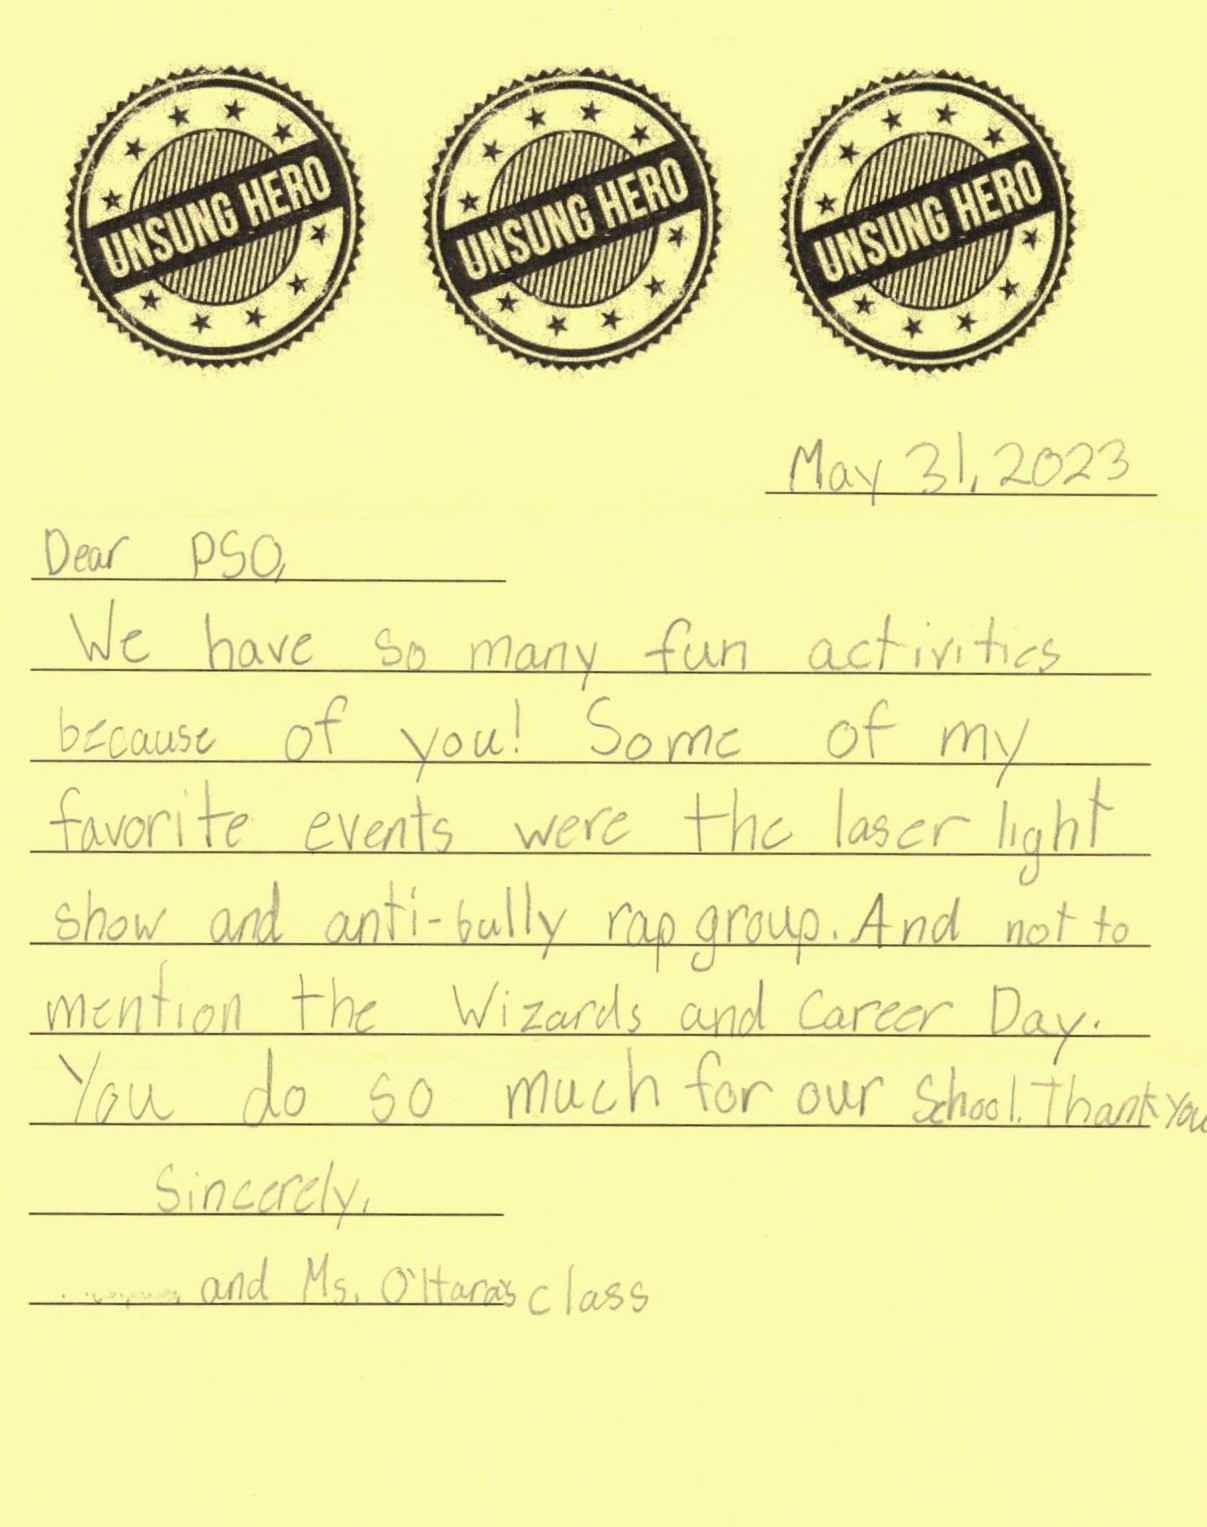 UNSUNG HERO UNSUNG HERO UNSUNG HERO
May 31, 2023
Dear PSO,
We have so many fun activities
because of you! Some of my
favorite events were the laser light
show and anti-bully rap group. And not to
mention the Wizards and Career Day.
You do so much for our School. Thank you
Sincerely,
and Ms. O'Hara's class